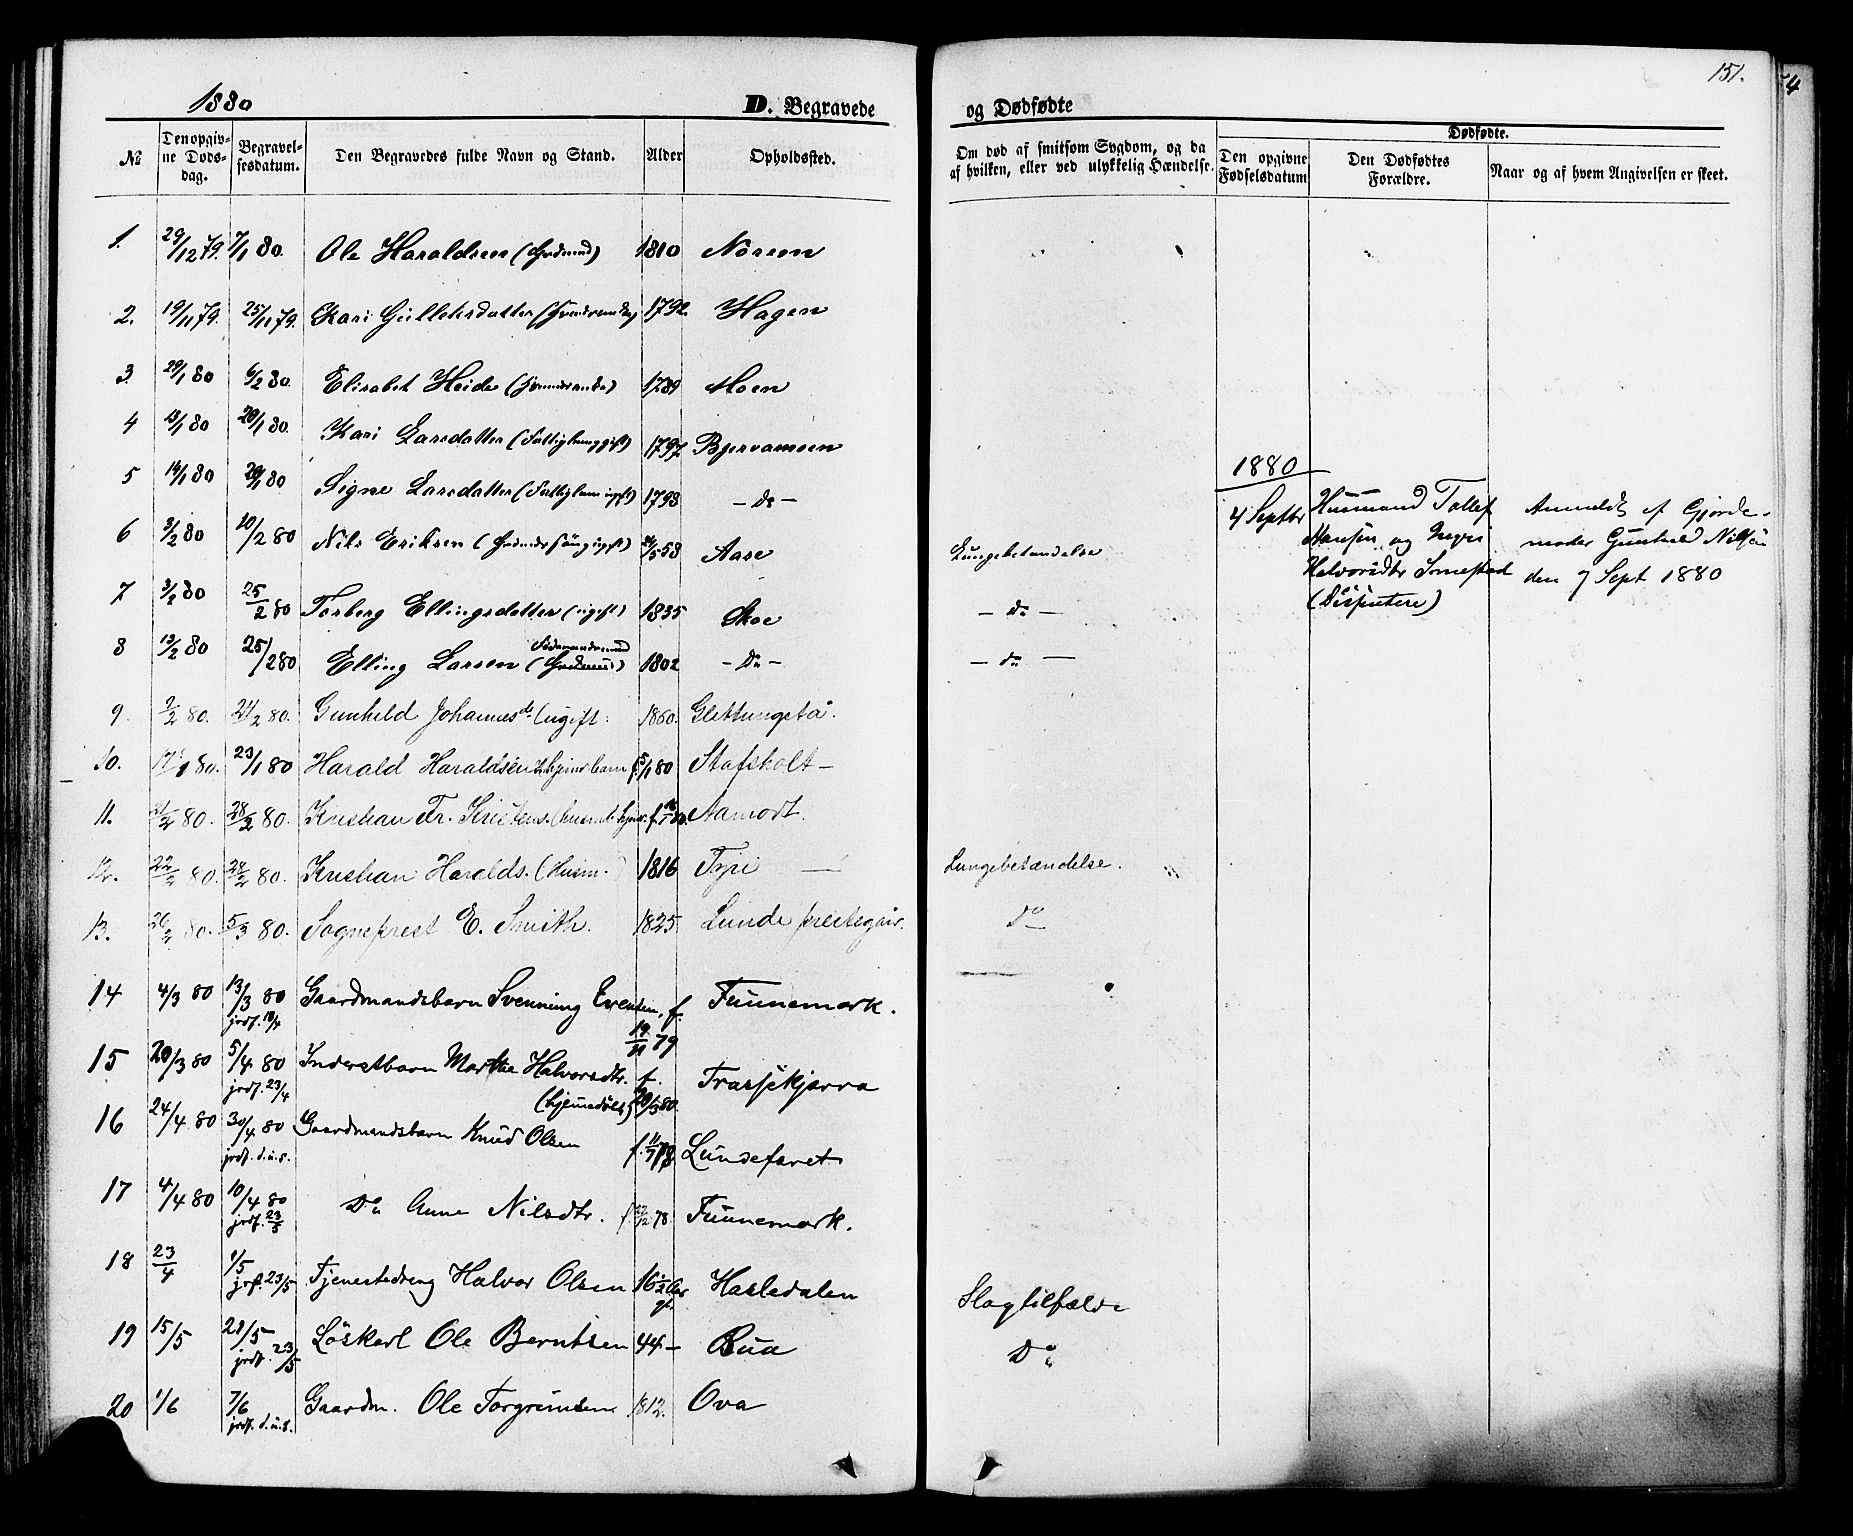 1880
D. Begravede
og Dødfødte
151.
№
Den opgivne Døds-dag.
Begravelsesdatum.
Den Begravedes fulde Navn og Stand.
Alder
Opholdssted.
Om død af smitsom Sygdom, og da af hvilken, eller ved ulykkelig Hændelse.
Dødfødte.
Den opgivne Fødselsdatum
Den Dødfødtes Forældre.
Naar og af hvem Angivelsen er skeet.
1. 29/12 79. 7/1 80. Ole Haraldsen 1810 Noreen
2. 19/11 79. 25/11 79. Kari Gullehsdatter 1792. Hagen
3. 29/1 80 6/2 80. Elisabet Heide 1789 Moen
4 13/1 80 20/1 80. Kari Larsdatter 1797 Bjervamoen
5 14/1 80 20/1 80 Signe Larsdatter 1793 – Do –
6 3/2 80 10/2 80 Nils Eriksen 53 Aase Lungebetændelse
7 3/2 80 25/2 80 Torberg Ellingsdatter (ugift) 1835 Skoe – Do –
8 13/2 80 25/2 80 Elling Larsen 1802 – Do – – do –
9. 9/2 80. 21/2 80. Gunhild Johannesdr (ugift. 1860. Glettungstå.
10. 17/1 80. 23/1 80 Harald Haraldsen 80 Stafsholt –
11. 21/2 80. 28/2 80. Kristian Fr. Aamodt.
12. 22/2 80. 28/2 80. Kristian Haralds. (Husm. 1816 Tyri – Lungebetændelse.
13. 26/2 80. 5/3 80. Sogneprest E. Smith. 1825. Lunde prestegår. Do
14 4/3 80 13/3 80 jrdf. 18/4 Gaardmandsbarn Svenning Evensen, f. 19/11 79 Funnemark.
15 20/3 80 5/4 80 jrdf. 23/4 Inderstbarn Marthe Halvorsdtr. (hjemedøbt) f. 20/3 80. Traasjekjærra
16 24/4 80 30/4 80 jrdf. d.u.s. Gaardmandsbarn Knud Olsen Lundefaret
17 4/4 80 10/4 80 jrdf. 23/5 Do Anne Nilsdtr. 78. Funnemark.
18 23/4 1/5 jrdf. 23/5 Tjenestedreng Halvor Olsen 16 1/2 Aar gl. Hasledalen Slagtilfælde
19 15/5 21/5 – jrdf. 23/5 Löskarl Ole Berntsen 44 – Bua Do
20 1/6 7/6 jrdf. d.u.s. Gaardm. Ole Torgrimsen 1812. Ova
1880
4 Septbr
Husmand Tollef
Hansen og Ingri
Halvorsdtr Smestad
(Disentere)
Anmeldt af Gjorde-
moder Gunhild Nilsen
den 7 Sept 1880